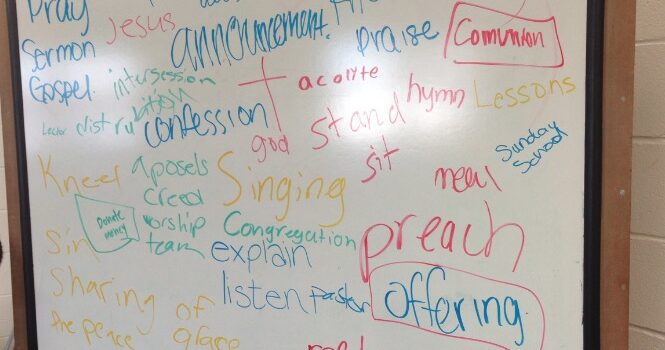 Pray
Jesus
announcement.
praise
Comunion
Sermon
Gospel.
intersession
acolyte
hymn
Lessons
Lector
distrubution
confession
god
stand
sit
Sunday
School
Kneel
aposels
creed
Singing
meal
Donate
money
worship
team
Congregation
preach
Sin
explain
Sharing of
the peace
listen
Pastor
offering
grace